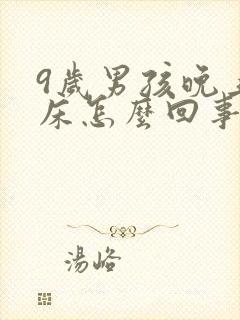 9歲男孩晚
床怎麼回事
湯峪